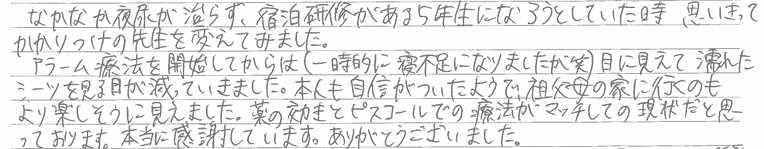 なかなか夜尿が治らず、宿泊研修がある5年生になろうとしていた時 思いきって
かかりつけの先生を変えてみました。
アラーム療法を開始してからは(一時的に寝不足になりましたが笑)目に見えて濡れた
シーツを見る日が減っていきました。本人も自信がついたようで、祖父母の家に行くのも
より楽しそうに見えました。薬の効きとピスコールでの療法がマッチしての現状だと思
っております。本当に感謝しています。ありがとうございました。